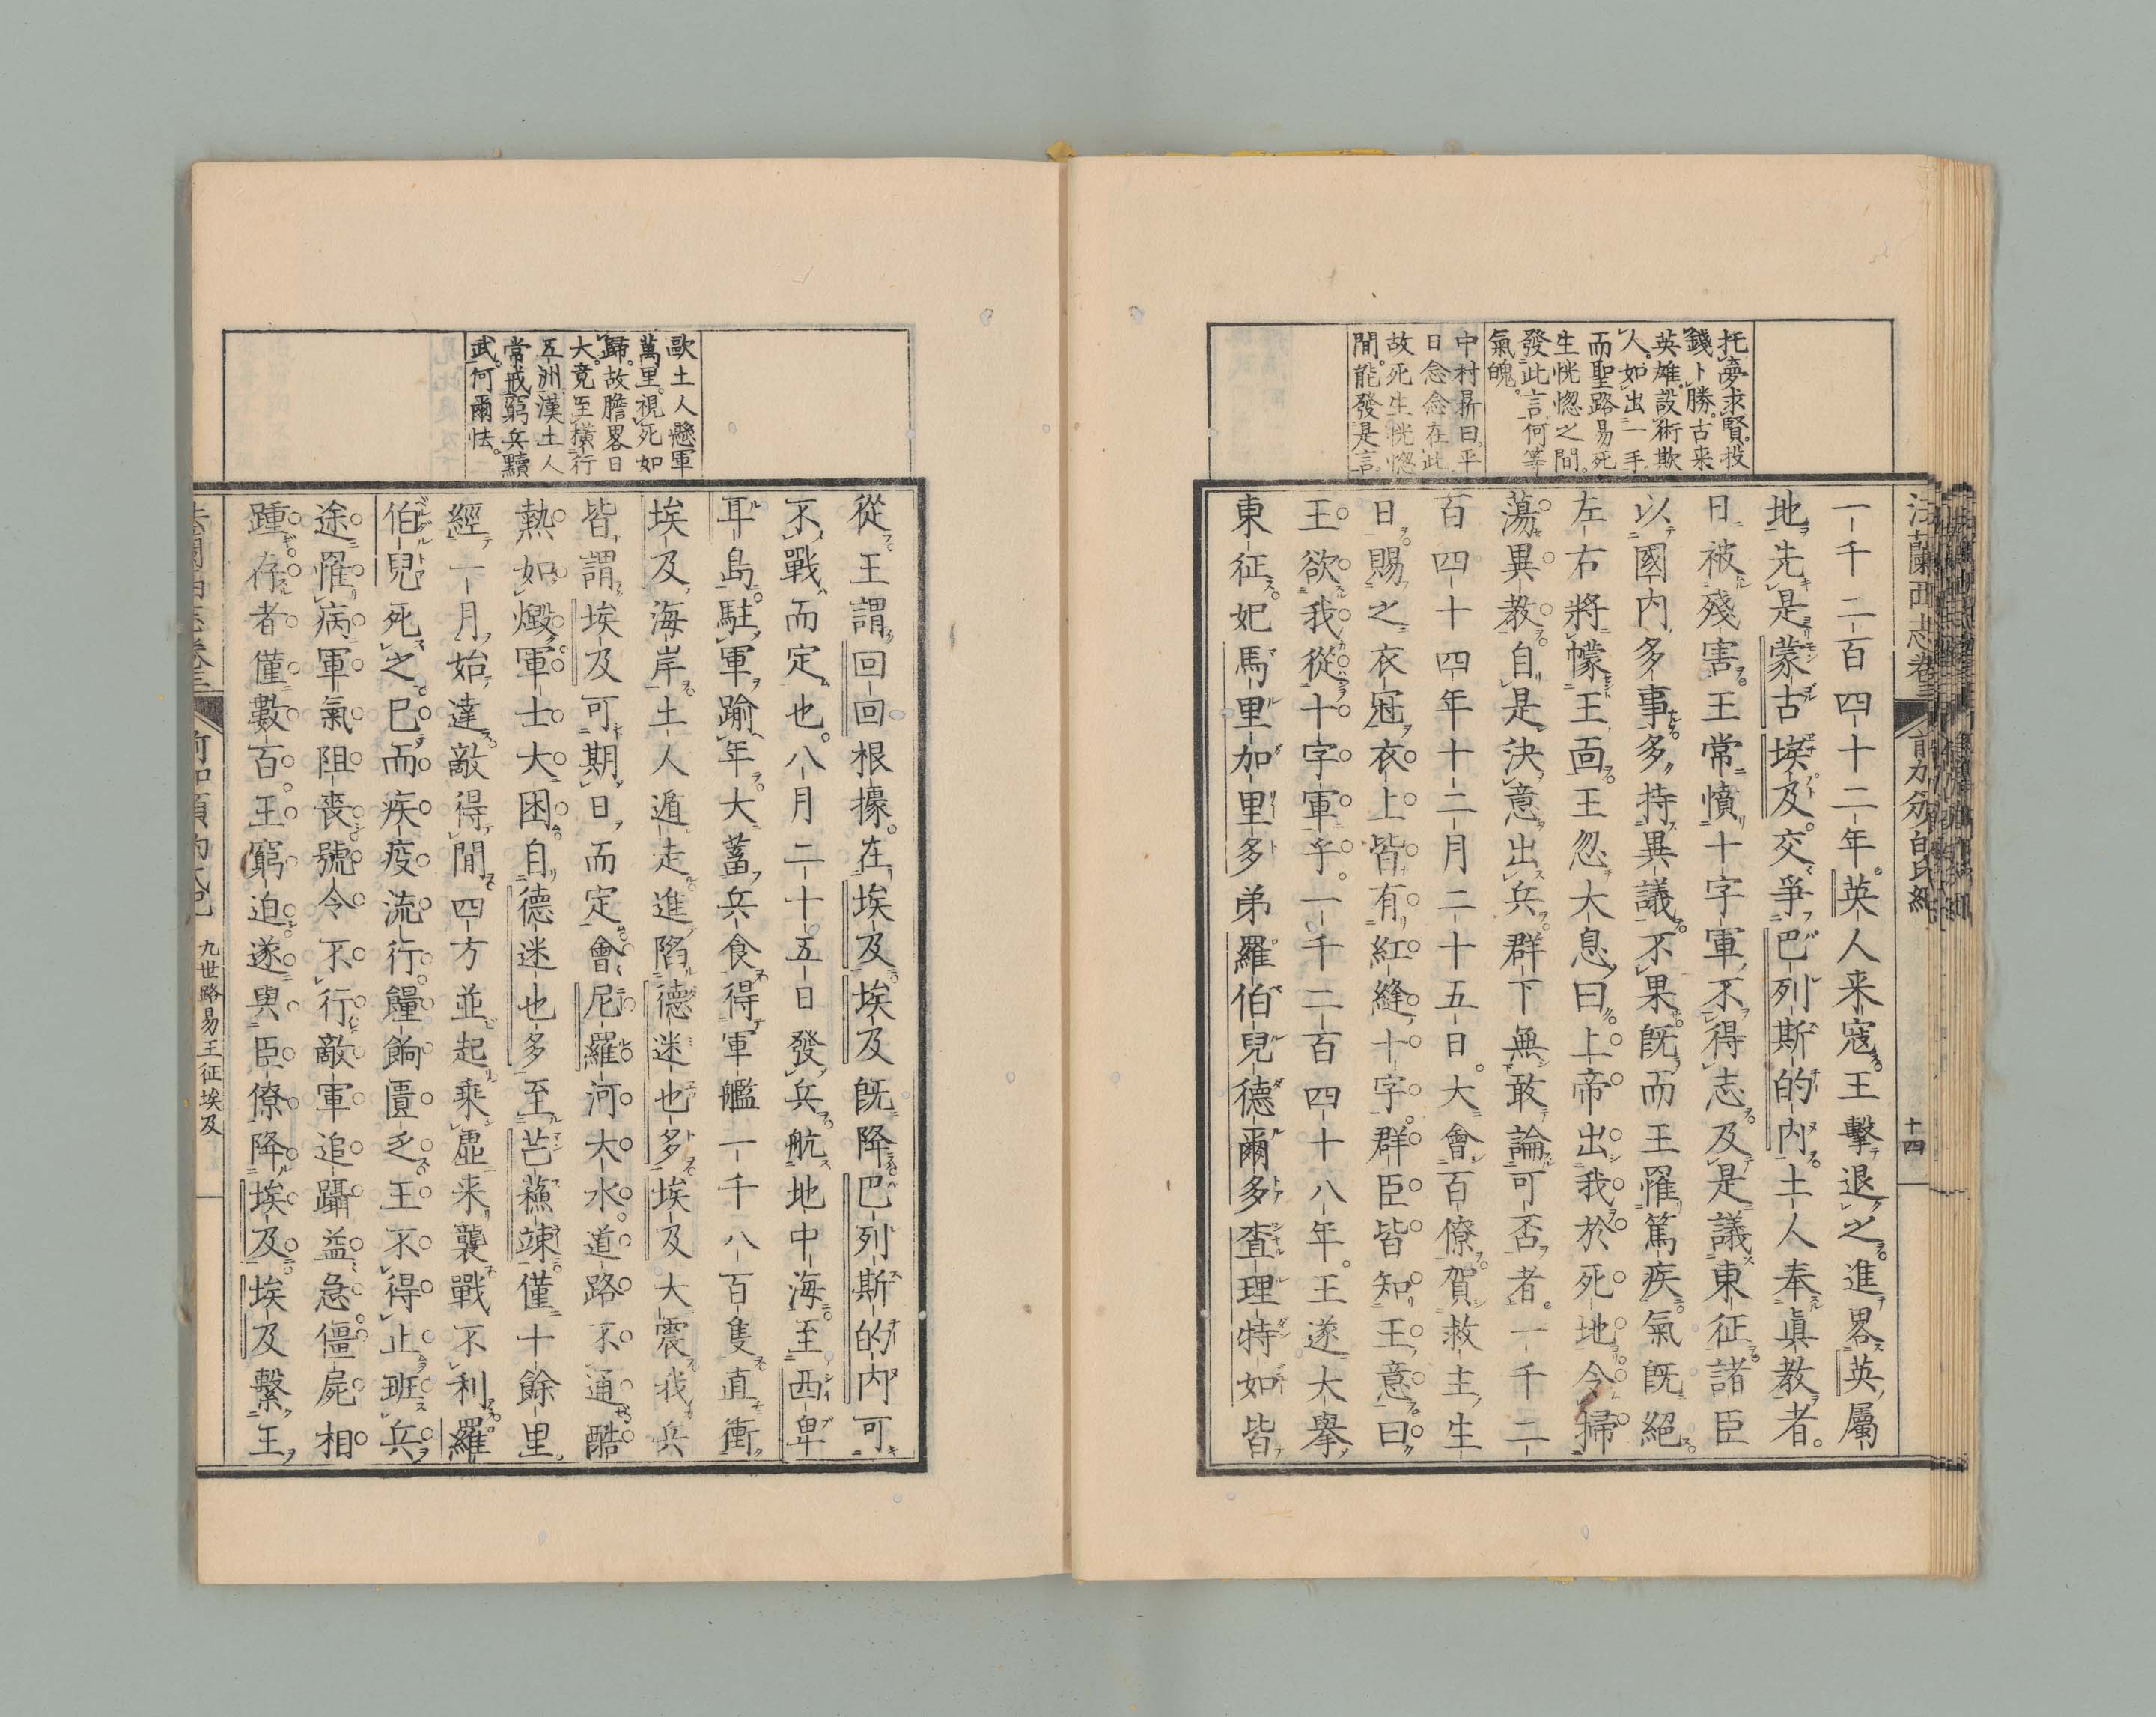 托夢求賢。投
錢卜勝。古来
英雄設術欺
人。如出一手。
而聖路易死
生恍惚之間。
發此言。何等
氣魄。
中村昻曰。平
日念念在此。
故死生恍惚
間。能發是言。
一千二百四十二年。英人来寇。王擊退之。進畧英屬
地。先是蒙古埃及。交爭巴列斯的內。土人奉眞教者。
日被殘害。王常憤十字軍不得志。及是議東征。諸臣
以國內多事。多持異議。不果。既而王罹篤疾。氣既絕。
左右將幪王面。王忽大息曰。上帝出我於死地。今掃
蕩異教。自是決意出兵。群下無敢論可否者。一千二
百四十四年十二月二十五日。大會百僚。賀救主生
日。賜之衣冠。衣上皆有紅縫十字。群臣皆知王意曰。
王欲我從十字軍乎。一千二百四十八年。王遂大擧
東征。妃馬里加里多弟羅伯兒德爾多查理特如皆
十四
從。王謂回回根據。在埃及。埃及既降。巴列斯的內可
不戰而定也。八月二十五日發兵。航地中海。至西卑
耳島。駐軍踰年。大蓄兵食。得軍艦一千八百隻。直衝
埃及海岸。土人遁走。進陷德迷也多。埃及大震。我兵
皆謂埃及可期日而定。會尼羅河大水。道路不通。酷
熱如燬。軍士大困。自德迷也多至芒蘓竦。僅十餘里。
經一月。始達。敵得間。四方並起。乘虛来襲。戰不利。羅
伯兒死之。已而疾疫流行。饍餉匱乏。王不得止班兵。
途罹病。軍氣阻喪。號令不行。敵軍追躡益急。僵屍相
踵。存者僅數百。王窮迫。遂與臣僚降埃及。埃及繫王
歐土人懸軍
萬里。視死如
歸。故膽畧日
大。竟至橫行
五洲。漢土人
常戒窮兵黷
武。何爾怯。
九世路易王征埃及